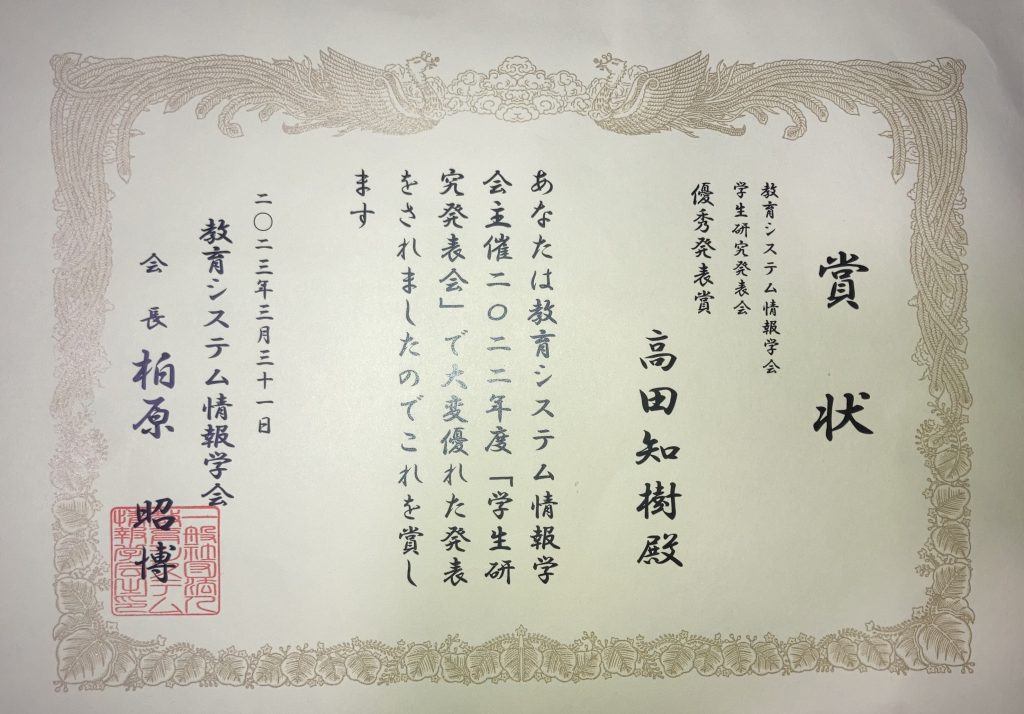 賞状
教育システム情報学会
学生研究発表会
優秀発表賞
高田知樹殿
あなたは教育システム情報学
会主催二〇二二年度「学生研
究発表会」で大変優れた発表
をされましたのでこれを賞し
ます
二〇二三年三月三十一日
教育システム情報学会
会長 柏原 昭博